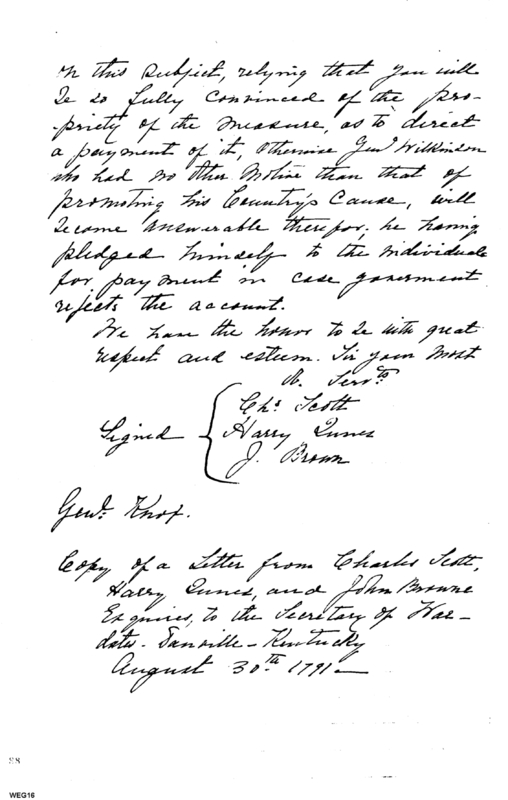 on this subject, relying that you will
be so fully convinced of the pro-
-priety of the measure, as to direct
a payment of it, otherwise Genl Wilkinson
who had no other motive than that of
promoting his Country's Cause, will
become answerable therefor; he having
pledged himself to the individuals
for payment in case goverment
rejects the account.
We have the honor to be with great
respect and esteem. Sir your most
O. Servts
Chs Scott
Signed Harry Innes
J. Brown
Genl. Knox.
Copy of a Letter from Charles Scott,
Harry Innes, and John Browne
Esquires, to the Secretary of War-
date. Danville - Kentucky
August 30th 1791-
88
WEG16